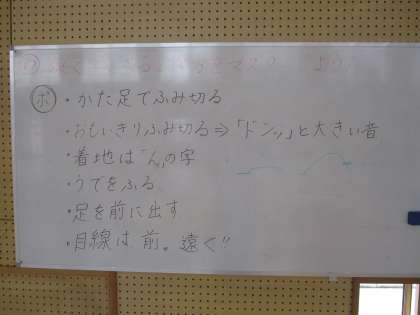 ポ ・かた足でふみ切る
・おもいきりふみ切る⇒「ドンッ」と大きい音
・着地は「ん」の字
・うでをふる
・足を前に出す
・目線は前。遠く!!